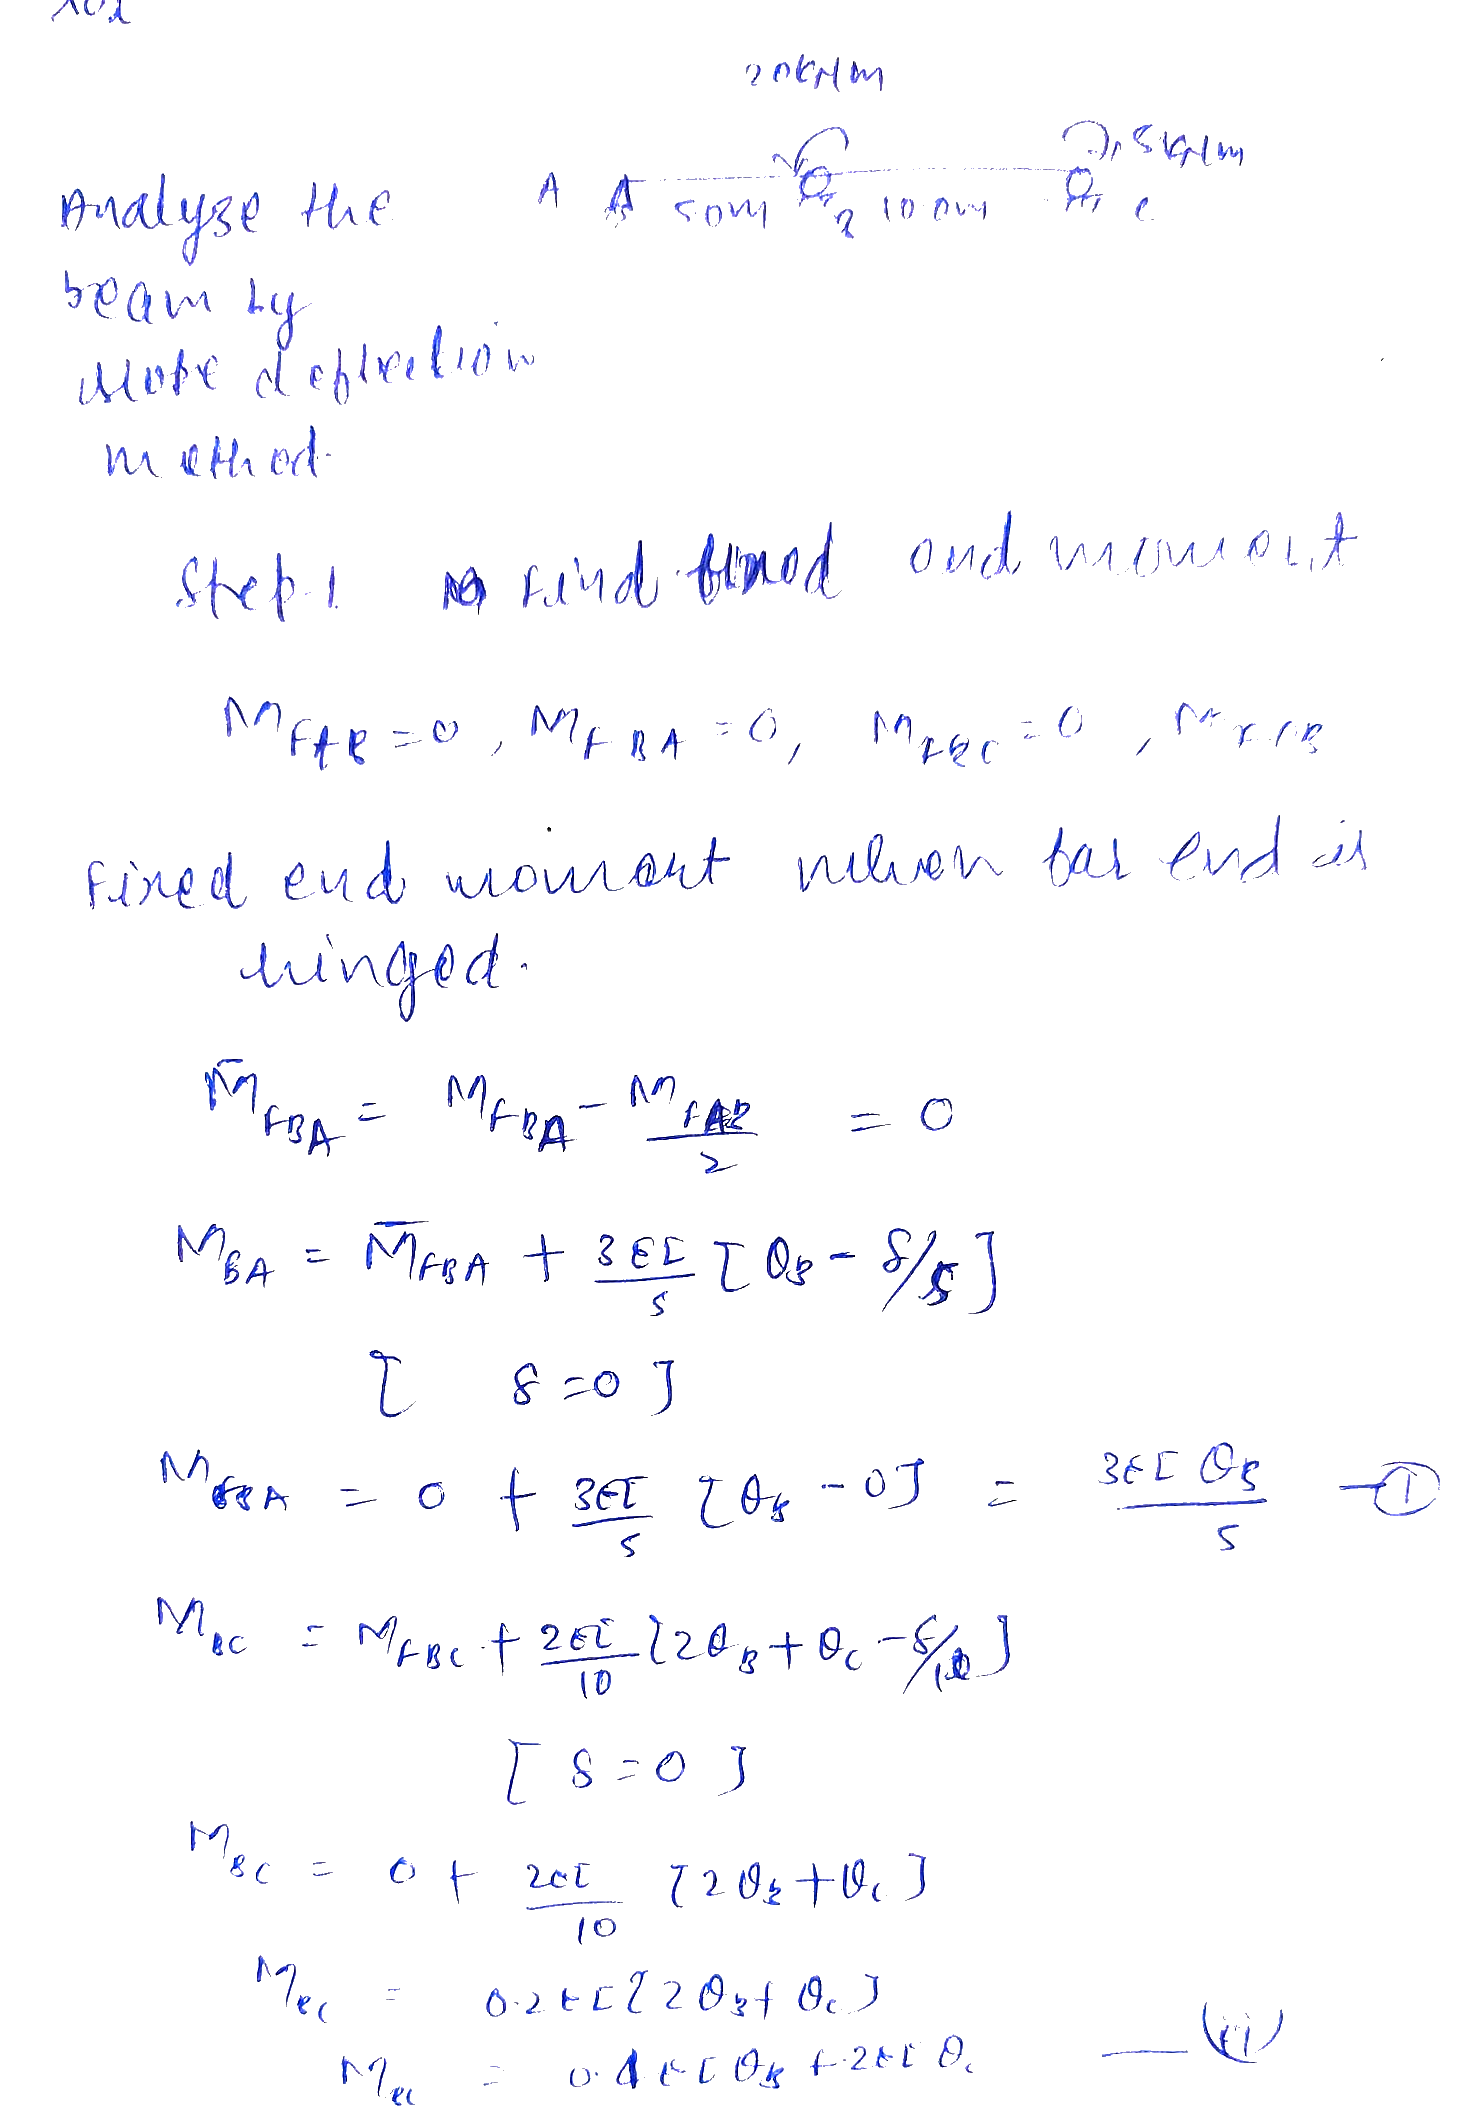 20kNm
Analyze the A 5 0m 2 10 0m 5kNm c
beam by
slope deflection
method.
Step 1 Find fixed end moment
MFAB = 0, MFBA = 0, MFBC = 0, MFCB
Fixed end moment when far end is
hinged.
M̄FBA = MFBA - MFAB/2 = 0
MBA = M̄FBA + 3EI/5 [θB - δ/5]
[ δ = 0 ]
MBA = 0 + 3EI/5 [θB - 0] = 3EI θB/5 — ①
MBC = MFBC + 2EI/10 [2θB + θC - δ/10]
[ δ = 0 ]
MBC = 0 + 2EI/10 [2θB + θC]
MBC = 0.2EI [2θB + θC]
MBC = 0.4EI θB + .2EI θC — (ii)